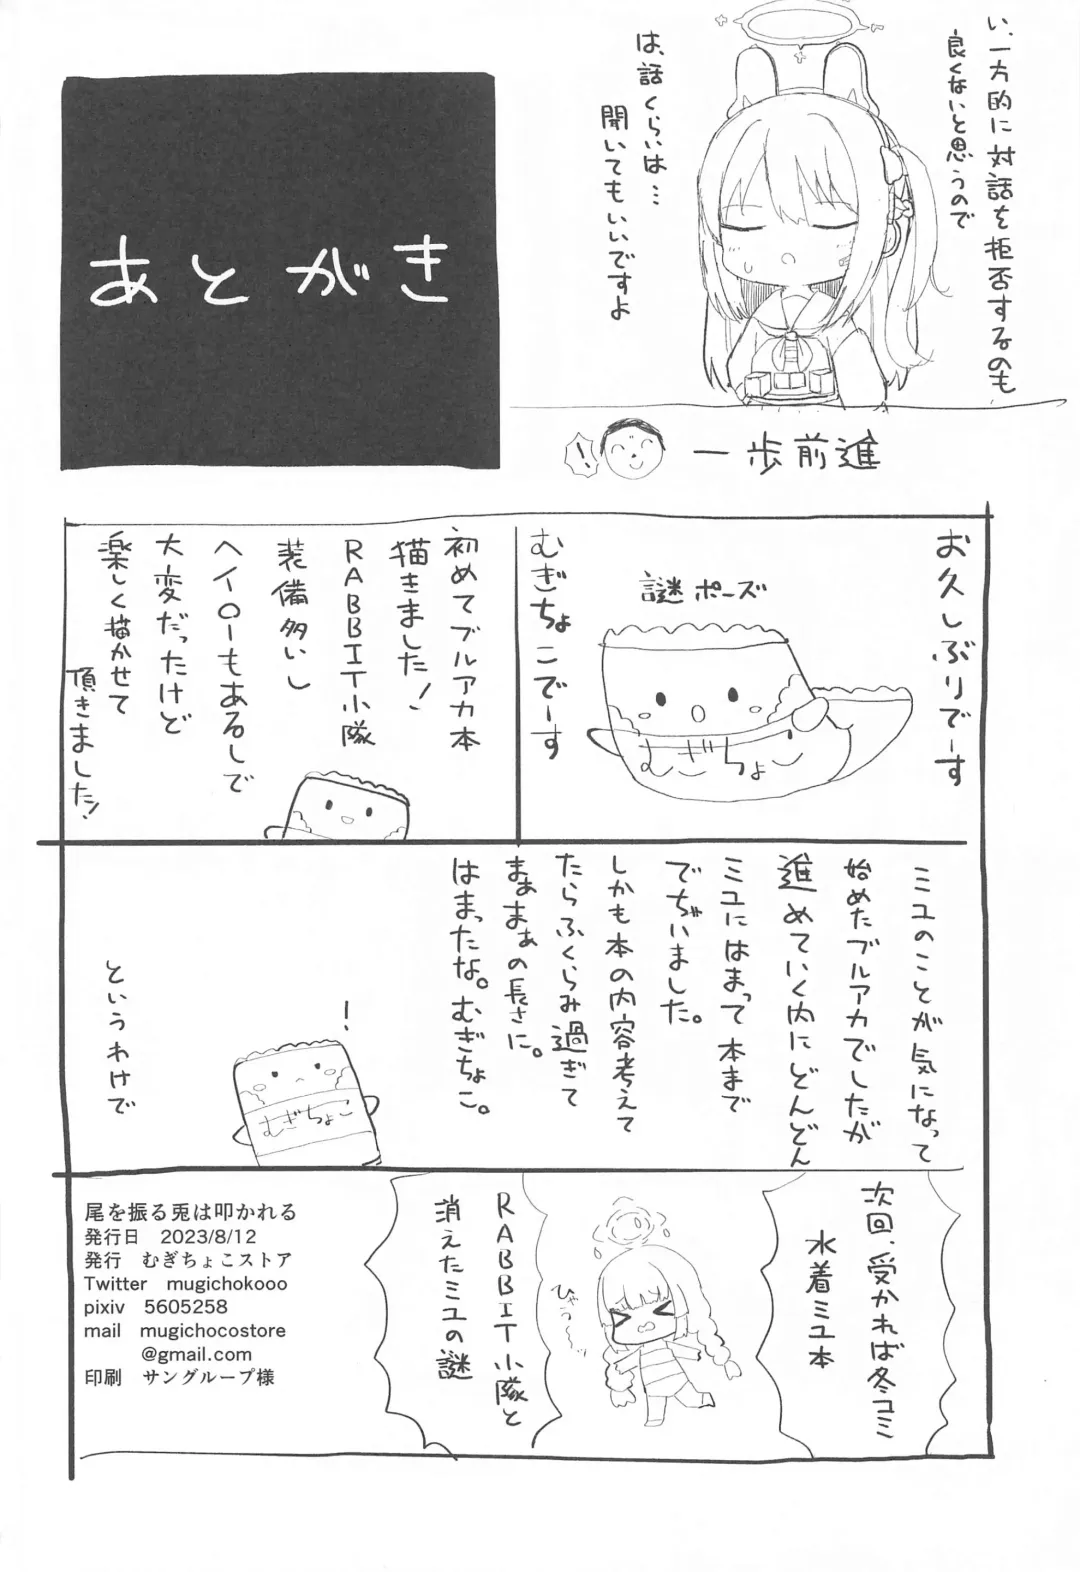 い、一方的に対話を拒否するのも
良くないと思うので
は、話くらいは…
聞いてもいいですよ
あとがき
!
一歩前進
お久しぶりでーす
謎ポーズ
むぎちょこ
むぎちょこでーす
初めてブルアカ本
描きました!
RABBIT小隊
装備多いし
ヘイローもあるしで
大変だったけど
楽しく描かせて
頂きました!
ミユのことが気になって
始めたブルアカでしたが
進めていく内にどんどん
ミユにはまって本まで
でちゃいました。
しかも本の内容考えて
たらふくらみ過ぎて
まぁまぁの長さに。
はまったな。むぎちょこ。
!
むぎちょこ
というわけで
次回、受かれば冬コミ
水着ミユ本
ひゃう〜
RABBIT小隊と
消えたミユの謎
尾を振る兎は叩かれる
発行日 2023/8/12
発行 むぎちょこストア
Twitter mugichokooo
pixiv 5605258
mail mugichocostore
@gmail.com
印刷 サングループ様